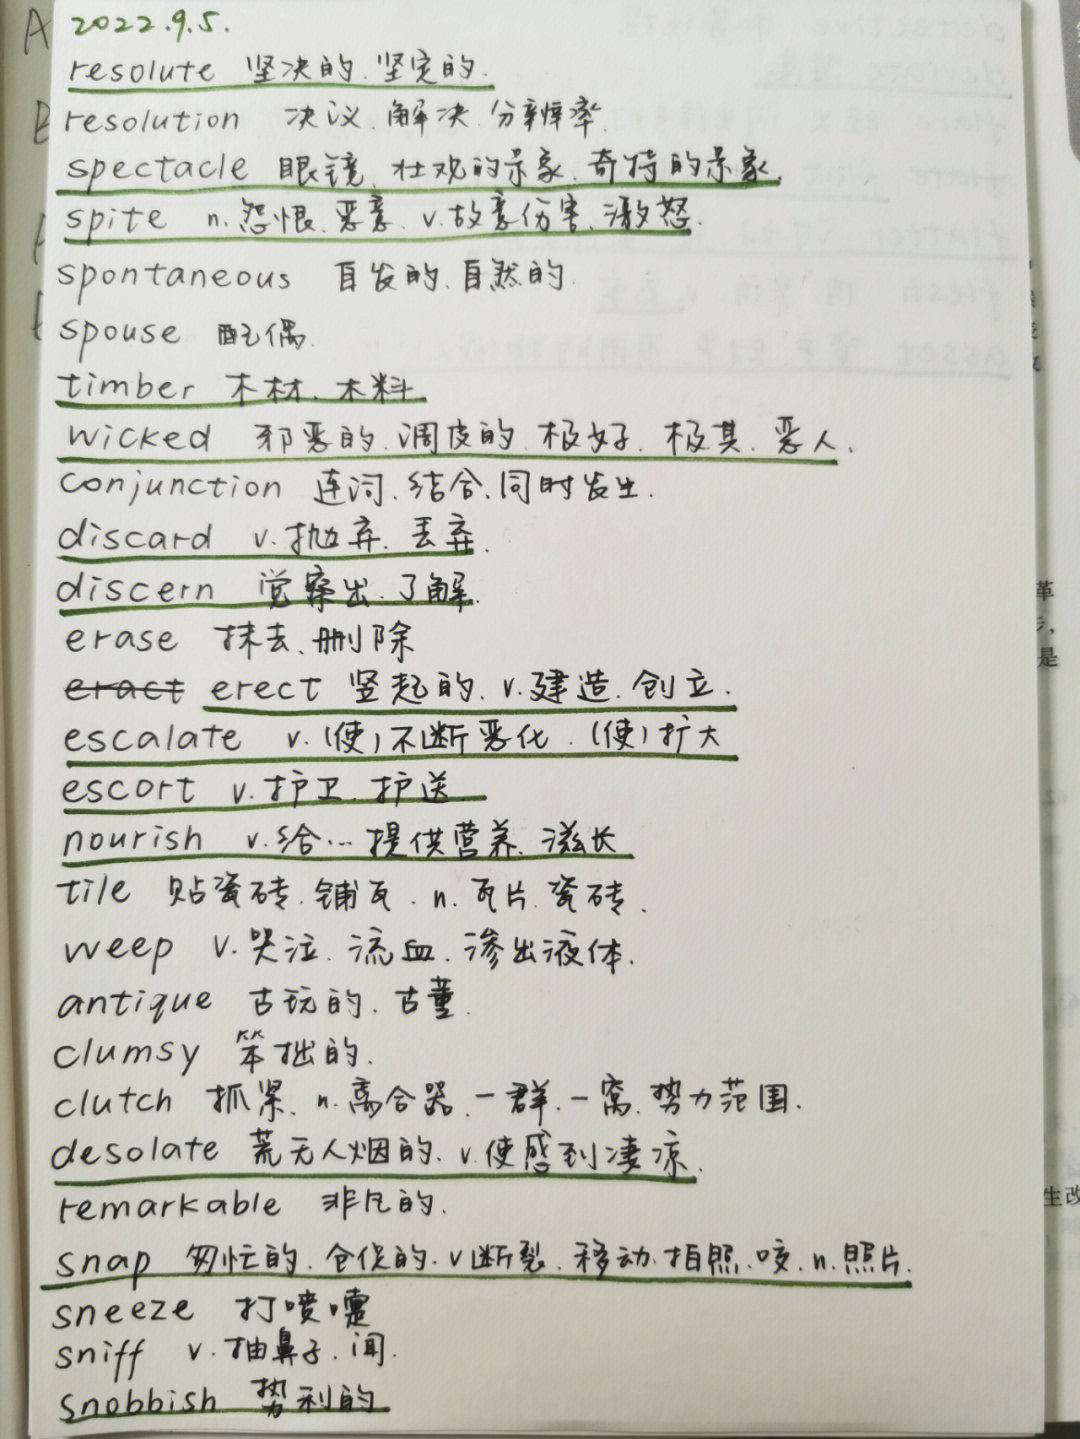 2022.9.5.
resolute 坚决的、坚定的.
resolution 决议、解决、分辨率.
spectacle 眼镜、壮观的景象、奇特的景象.
spite n.怨恨、恶意、v.故意伤害、激怒.
spontaneous 自发的、自然的.
spouse 配偶.
timber 木材、木料
wicked 邪恶的、调皮的、极好、极其、恶人.
conjunction 连词、结合、同时发生.
discard v.抛弃、丢弃.
discern 觉察出、了解.
erase 抹去、删除
eract erect 竖起的、v.建造、创立.
escalate v.(使)不断恶化、(使)扩大
escort v.护卫、护送
nourish v.给…提供营养、滋长
tile 贴瓷砖、铺瓦、n.瓦片、瓷砖、
weep v.哭泣、流血、渗出液体.
antique 古玩的、古董.
clumsy 笨拙的.
clutch 抓紧、n.离合器、一群、一窝、势力范围.
desolate 荒无人烟的、v.使感到凄凉.
remarkable 非凡的.
snap 匆忙的、仓促的、v断裂、移动、拍照、咬、n.照片.
sneeze 打喷嚏
sniff v.抽鼻子、闻.
snobbish 势利的
革
是
生改